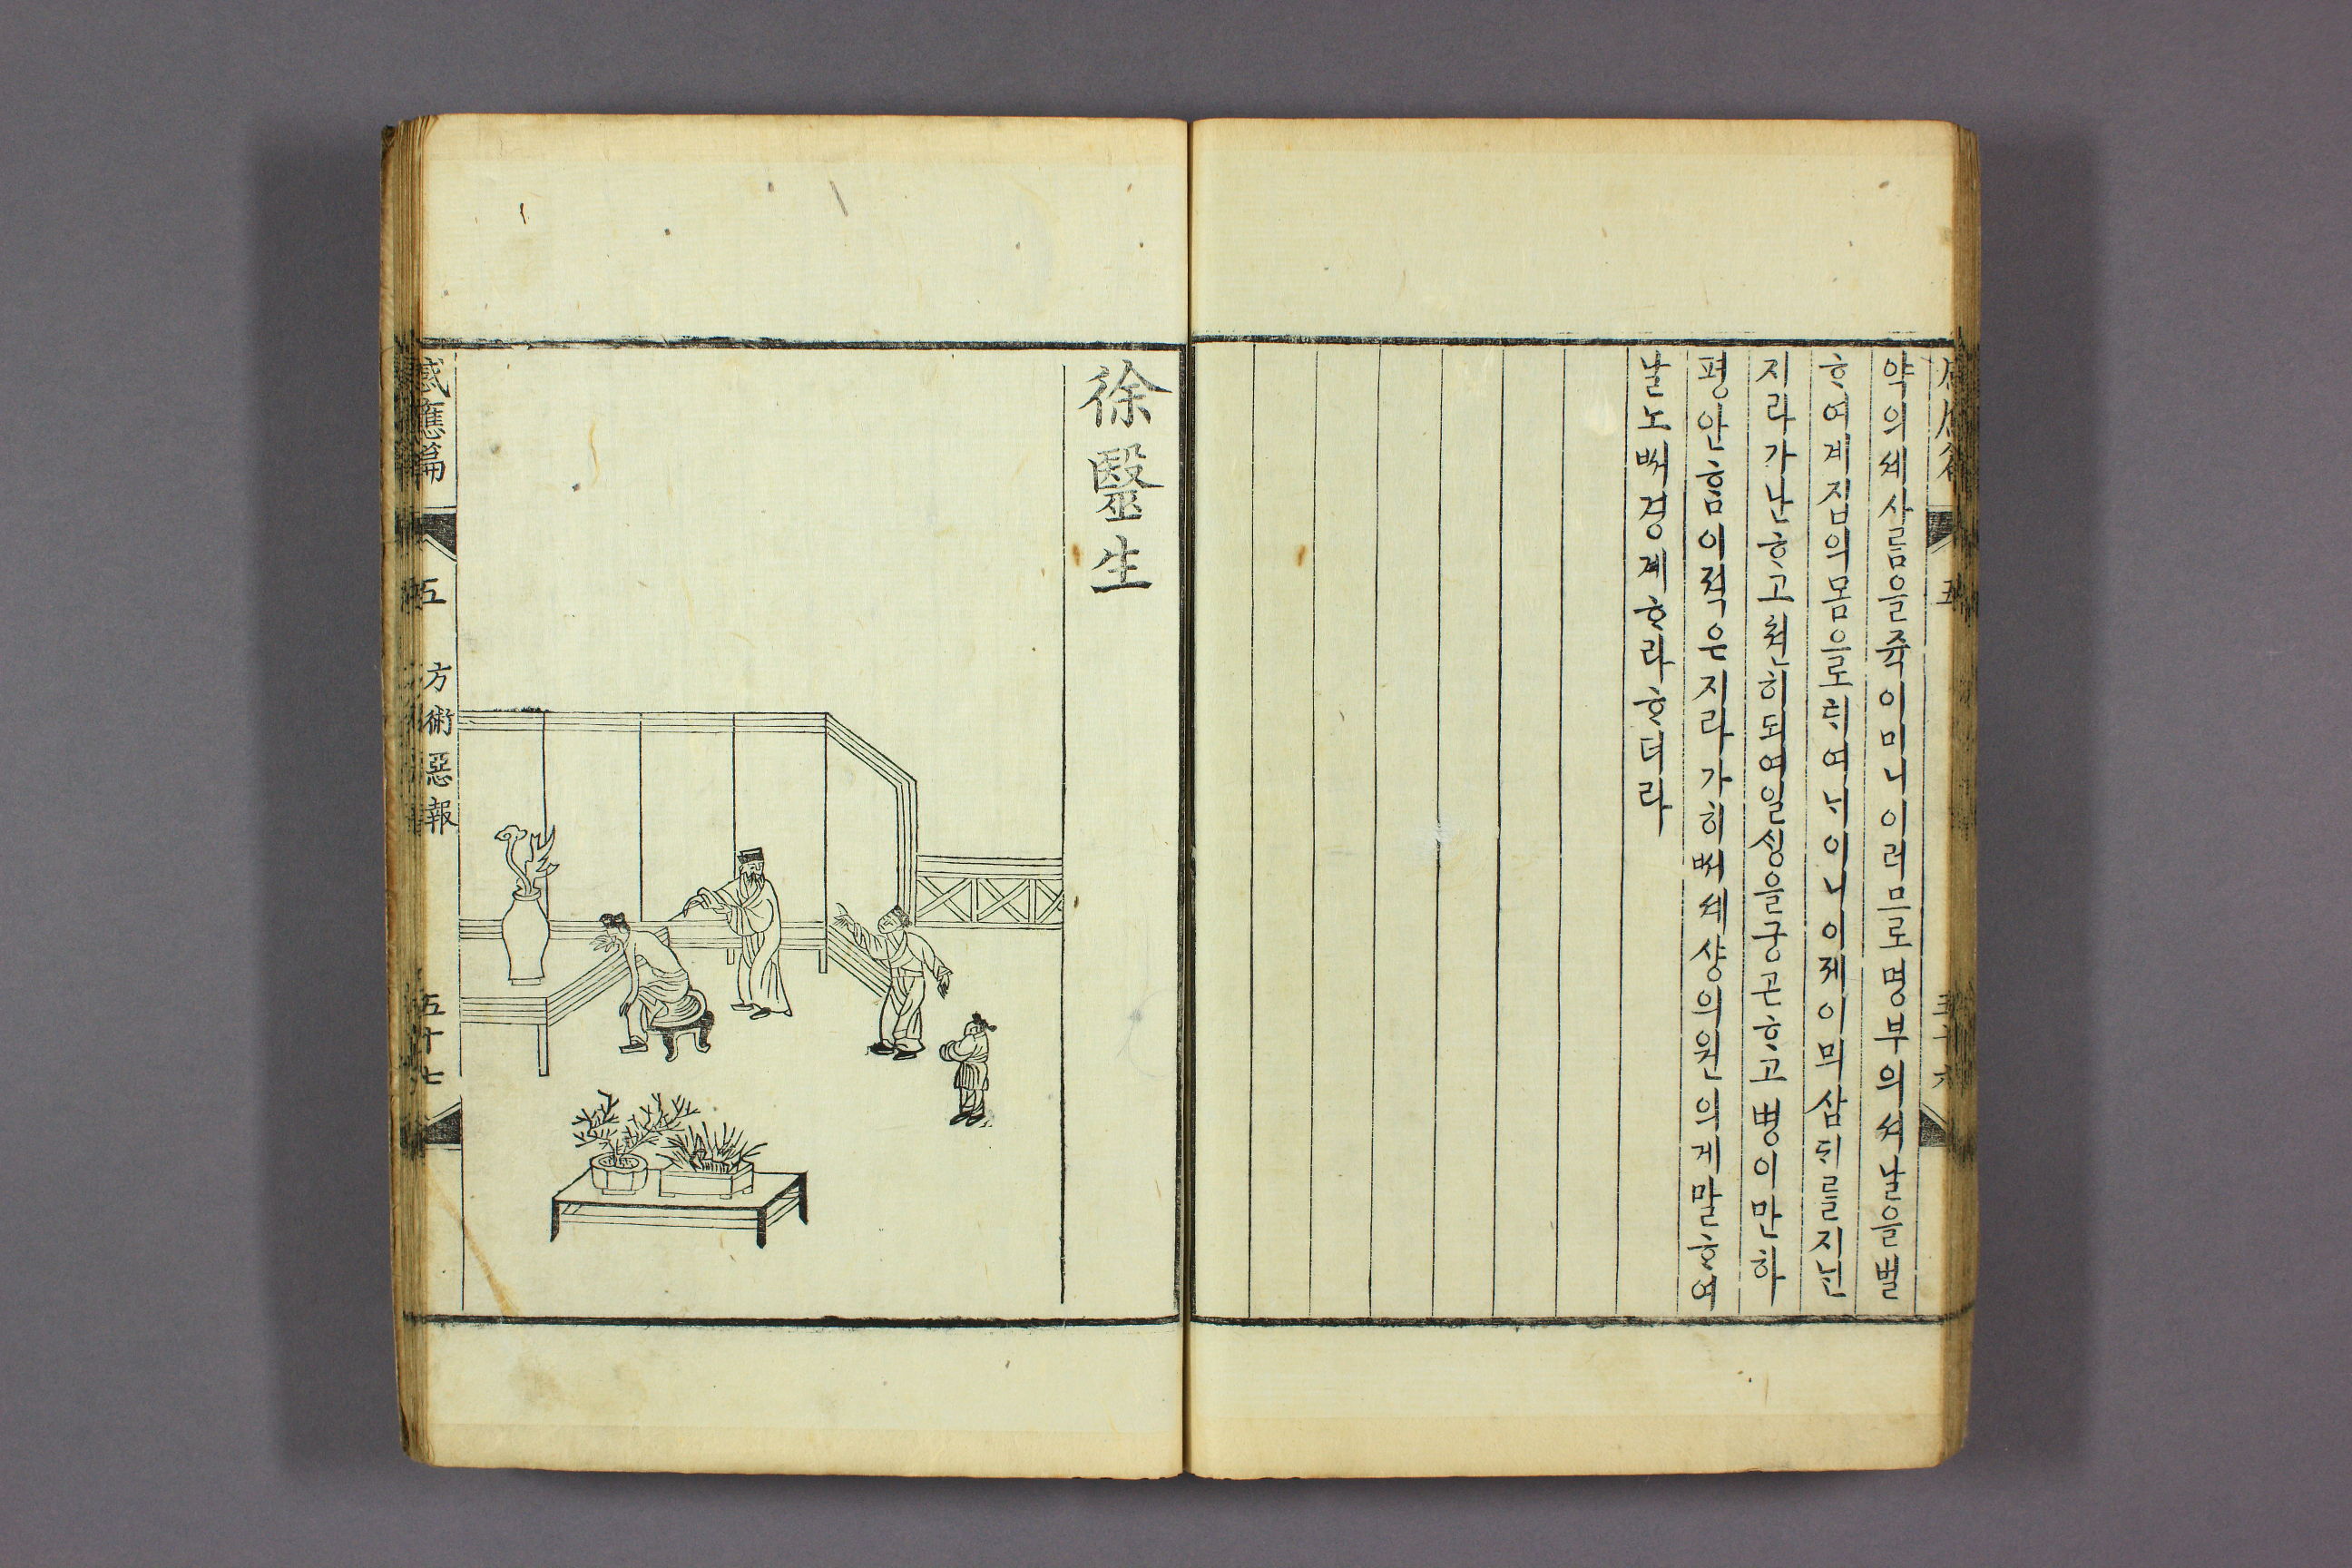 五 五十六
약의셰사ᄅᆞᆷ을쥭이미니이러므로명부의셔날을벌
ᄒᆞ여계집의몸으로ᄐᆡ여ᄂᆡ이니이졔이믜삼ᄃᆡ를지ᄂᆡᆫ
지라가난ᄒᆞ고쳔히되여일ᄉᆡᆼ을궁곤ᄒᆞ고병이만하
평안ᄒᆞᆷ이젹은지라가히ᄡᅥ셰샹의원의게말ᄒᆞ여
날노ᄡᅥ경계ᄒᆞ라ᄒᆞ더라
徐毉生
感應篇 五 方術惡報 五十七